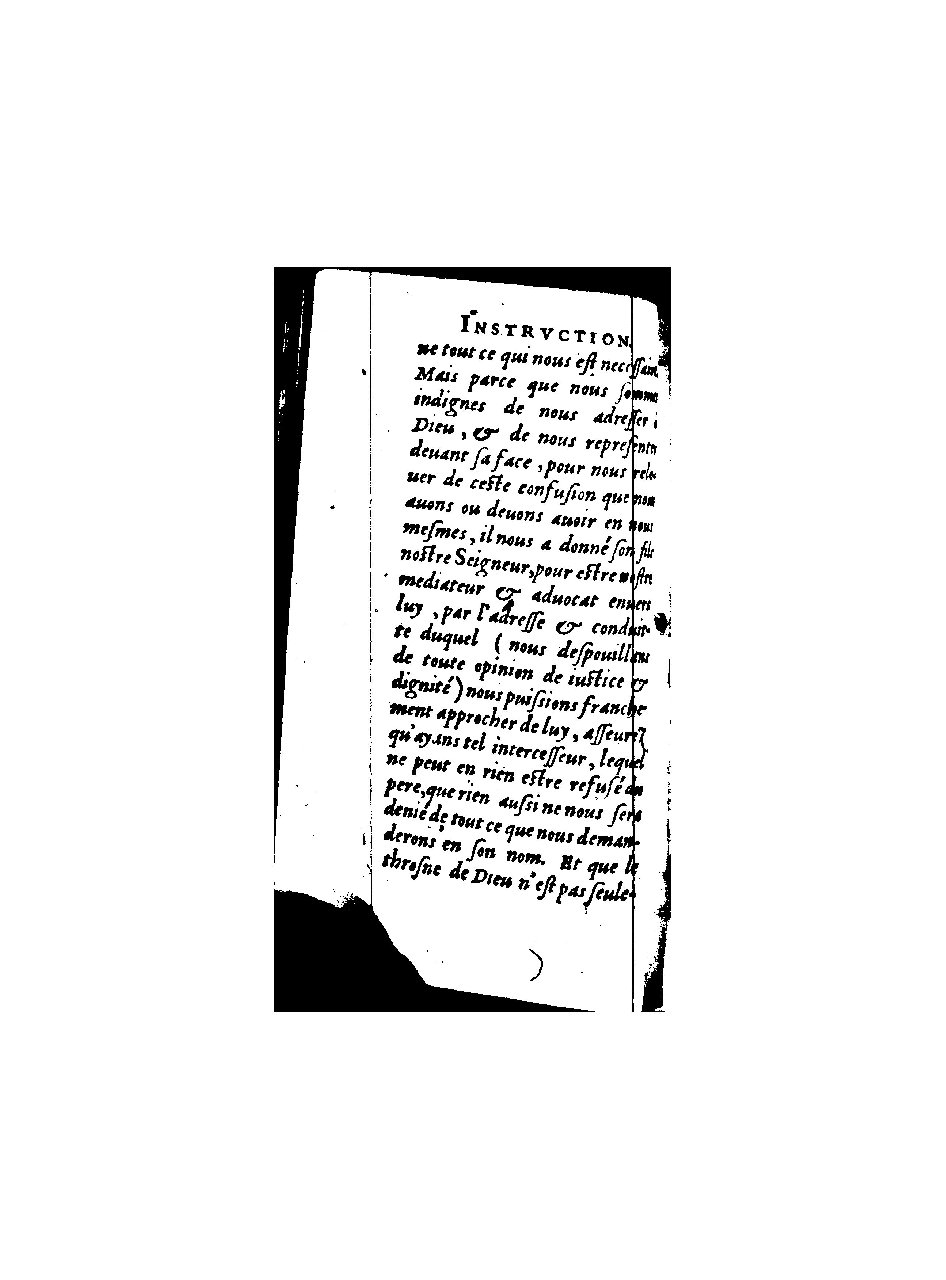 INSTRVCTION
ne tout ce qui nous eſt neceſſaire
Mais parce que nous ſommes
indignes de nous adreſſer à
Dieu , & de nous repreſenter
deuant ſa face , pour nous rele-
uer de ceſte confuſion que nous
auons ou deuons auoir en nous
meſmes , il nous a donné ſon fils
noſtre Seigneur, pour eſtre noſtre
mediateur & aduocat enuers
luy , par l'adreſſe & condui-
te duquel ( nous deſpouillans
de toute opinion de iuſtice &
dignité ) nous puiſsions franche
ment approcher de luy , aſſeurez
qu'ayans tel interceſſeur , lequel
ne peut en rien eſtre refuſé du
pere, que rien auſsi ne nous ſera
denié de tout ce que nous deman-
derons en ſon nom. Et que le
throſne de Dieu n'eſt pas ſeule-